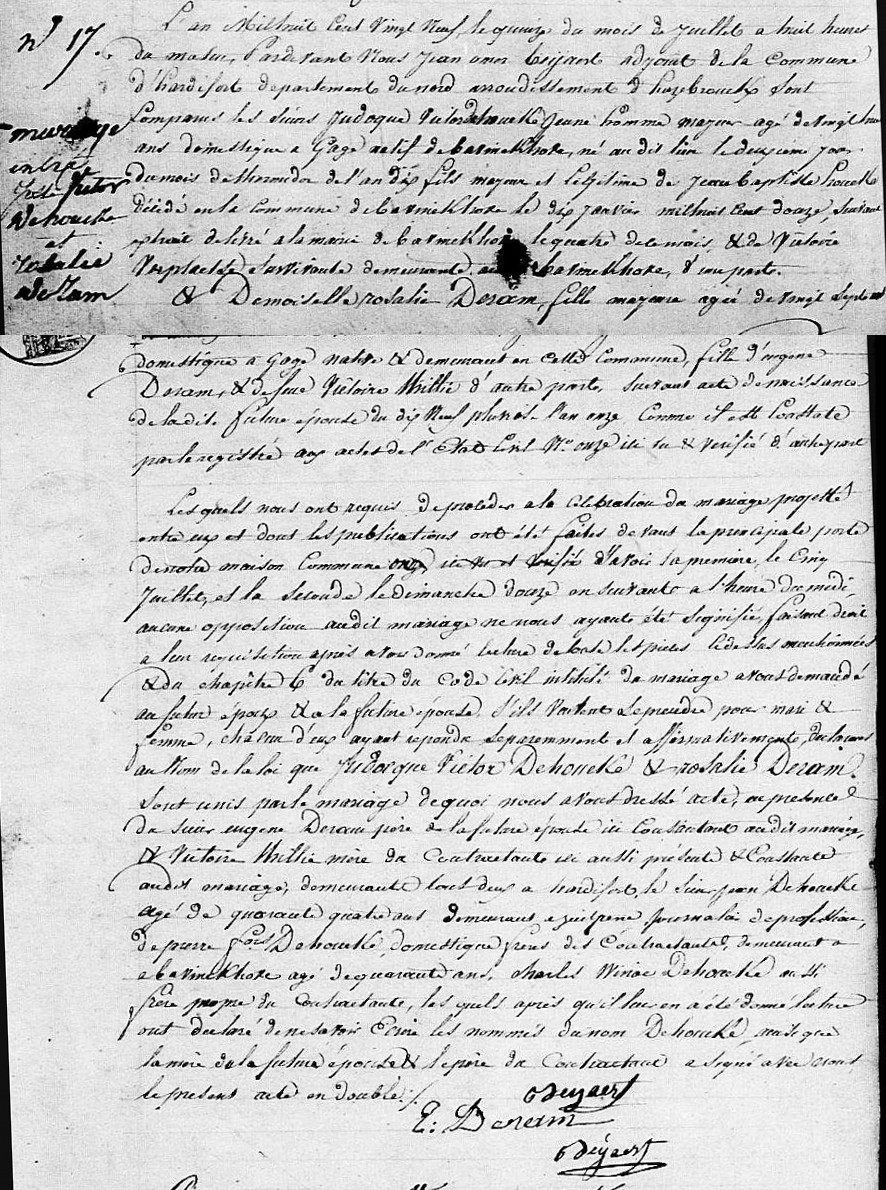 n° 17.
mariage
entre
Victor
Dehoucke
et
rosalie
Deram
L'an Mil huit Cent Vingt Neuf, le quinze du mois de Juillet a huit heures
du matin, Pardevant Nous Jean omer adjoint de la Commune
d'hardifort departement du nord arrondissement d'hazebrouck Sont
Comparus les Sieurs Judoque Victor Dehoucke Jeune homme majeur agé de vingt
ans domestique a Gage natif de bavinckhove, né audit lieu le deuxieme jour
du mois de thermidor de l'an dix fils majeur et legitime de Jean baptiste houcke
décédé en la Commune de bavinckhove le dix janvier mil huit Cent douze, Suivant
extrait delivré a la mairie de bavinckhove le quatre de ce mois, & de Victoire
Verplaetse Survivante demeurante bavinckhove, d'une part.
& Demoiselle rosalie Deram, fille majeure agée de vingt Sept ans
domestique a Gage native & demeurant en cette Commune, fille d'eugene
Deram, & de feue Victoire Mullie d'autre part, Suivant acte de naissance
de la dite future épouse du dix Neuf pluvose l'an onze Comme il est Constaté
par le registre aux actes de l'Etat Civil N° onze ici vu & verifié d'autre part
Les quels nous ont requis de proceder a la Celebration du mariage projetté
entre eux et dont les publications ont été faites devant la principale porte
de notre maison Commune Savoir la premiere, le Cinq
Juillet, et la Seconde le dimanche douze en suivant a l'heure du midi,
aucune opposition audit mariage ne nous ayant été Signifié, faisant droit
a leur requisition après avoir donné lecture de toutes les pieces ci dessus mentionnées
& du chapitre 6 du titre du Code Civil intitulé du mariage avons demandé
au futur époux & a la future épouse, S'ils veulent Se prendre pour mari &
femme, chacun d'eux ayant repondu Separemment et affirmativement, declarons
au Nom de la loi que Judocque Victor Dehoucke & rosalie Deram,
Sont unis par le mariage de quoi nous avons dressé acte, en presence
du Sieur eugene Deram père de la future épouse ici Consentant audit mariage,
& Victoire Mullie mère du Contractante ici aussi présente & Consente
audit mariage, demeurante tous deux a hardifort, le Sieur jean Dehoucke
agé de quarante quatre ans demeurant a zuitpene journalier de profession,
de pierre fois Dehoucke, domestique frères des Contractante, demeurant a
a bavinckhove agé de quarante ans, charles Winoc Dehoucke aussi
frère propre du Contractante, les quels après qu'il leur en a été donné lecture
ont declaré de ne savoir Ecrire les nommés du nom Dehoucke, ainsi que
la mère de la future épouse & le père du Contractant a Signé avec nous
le present acte en double ./.
E: Deram